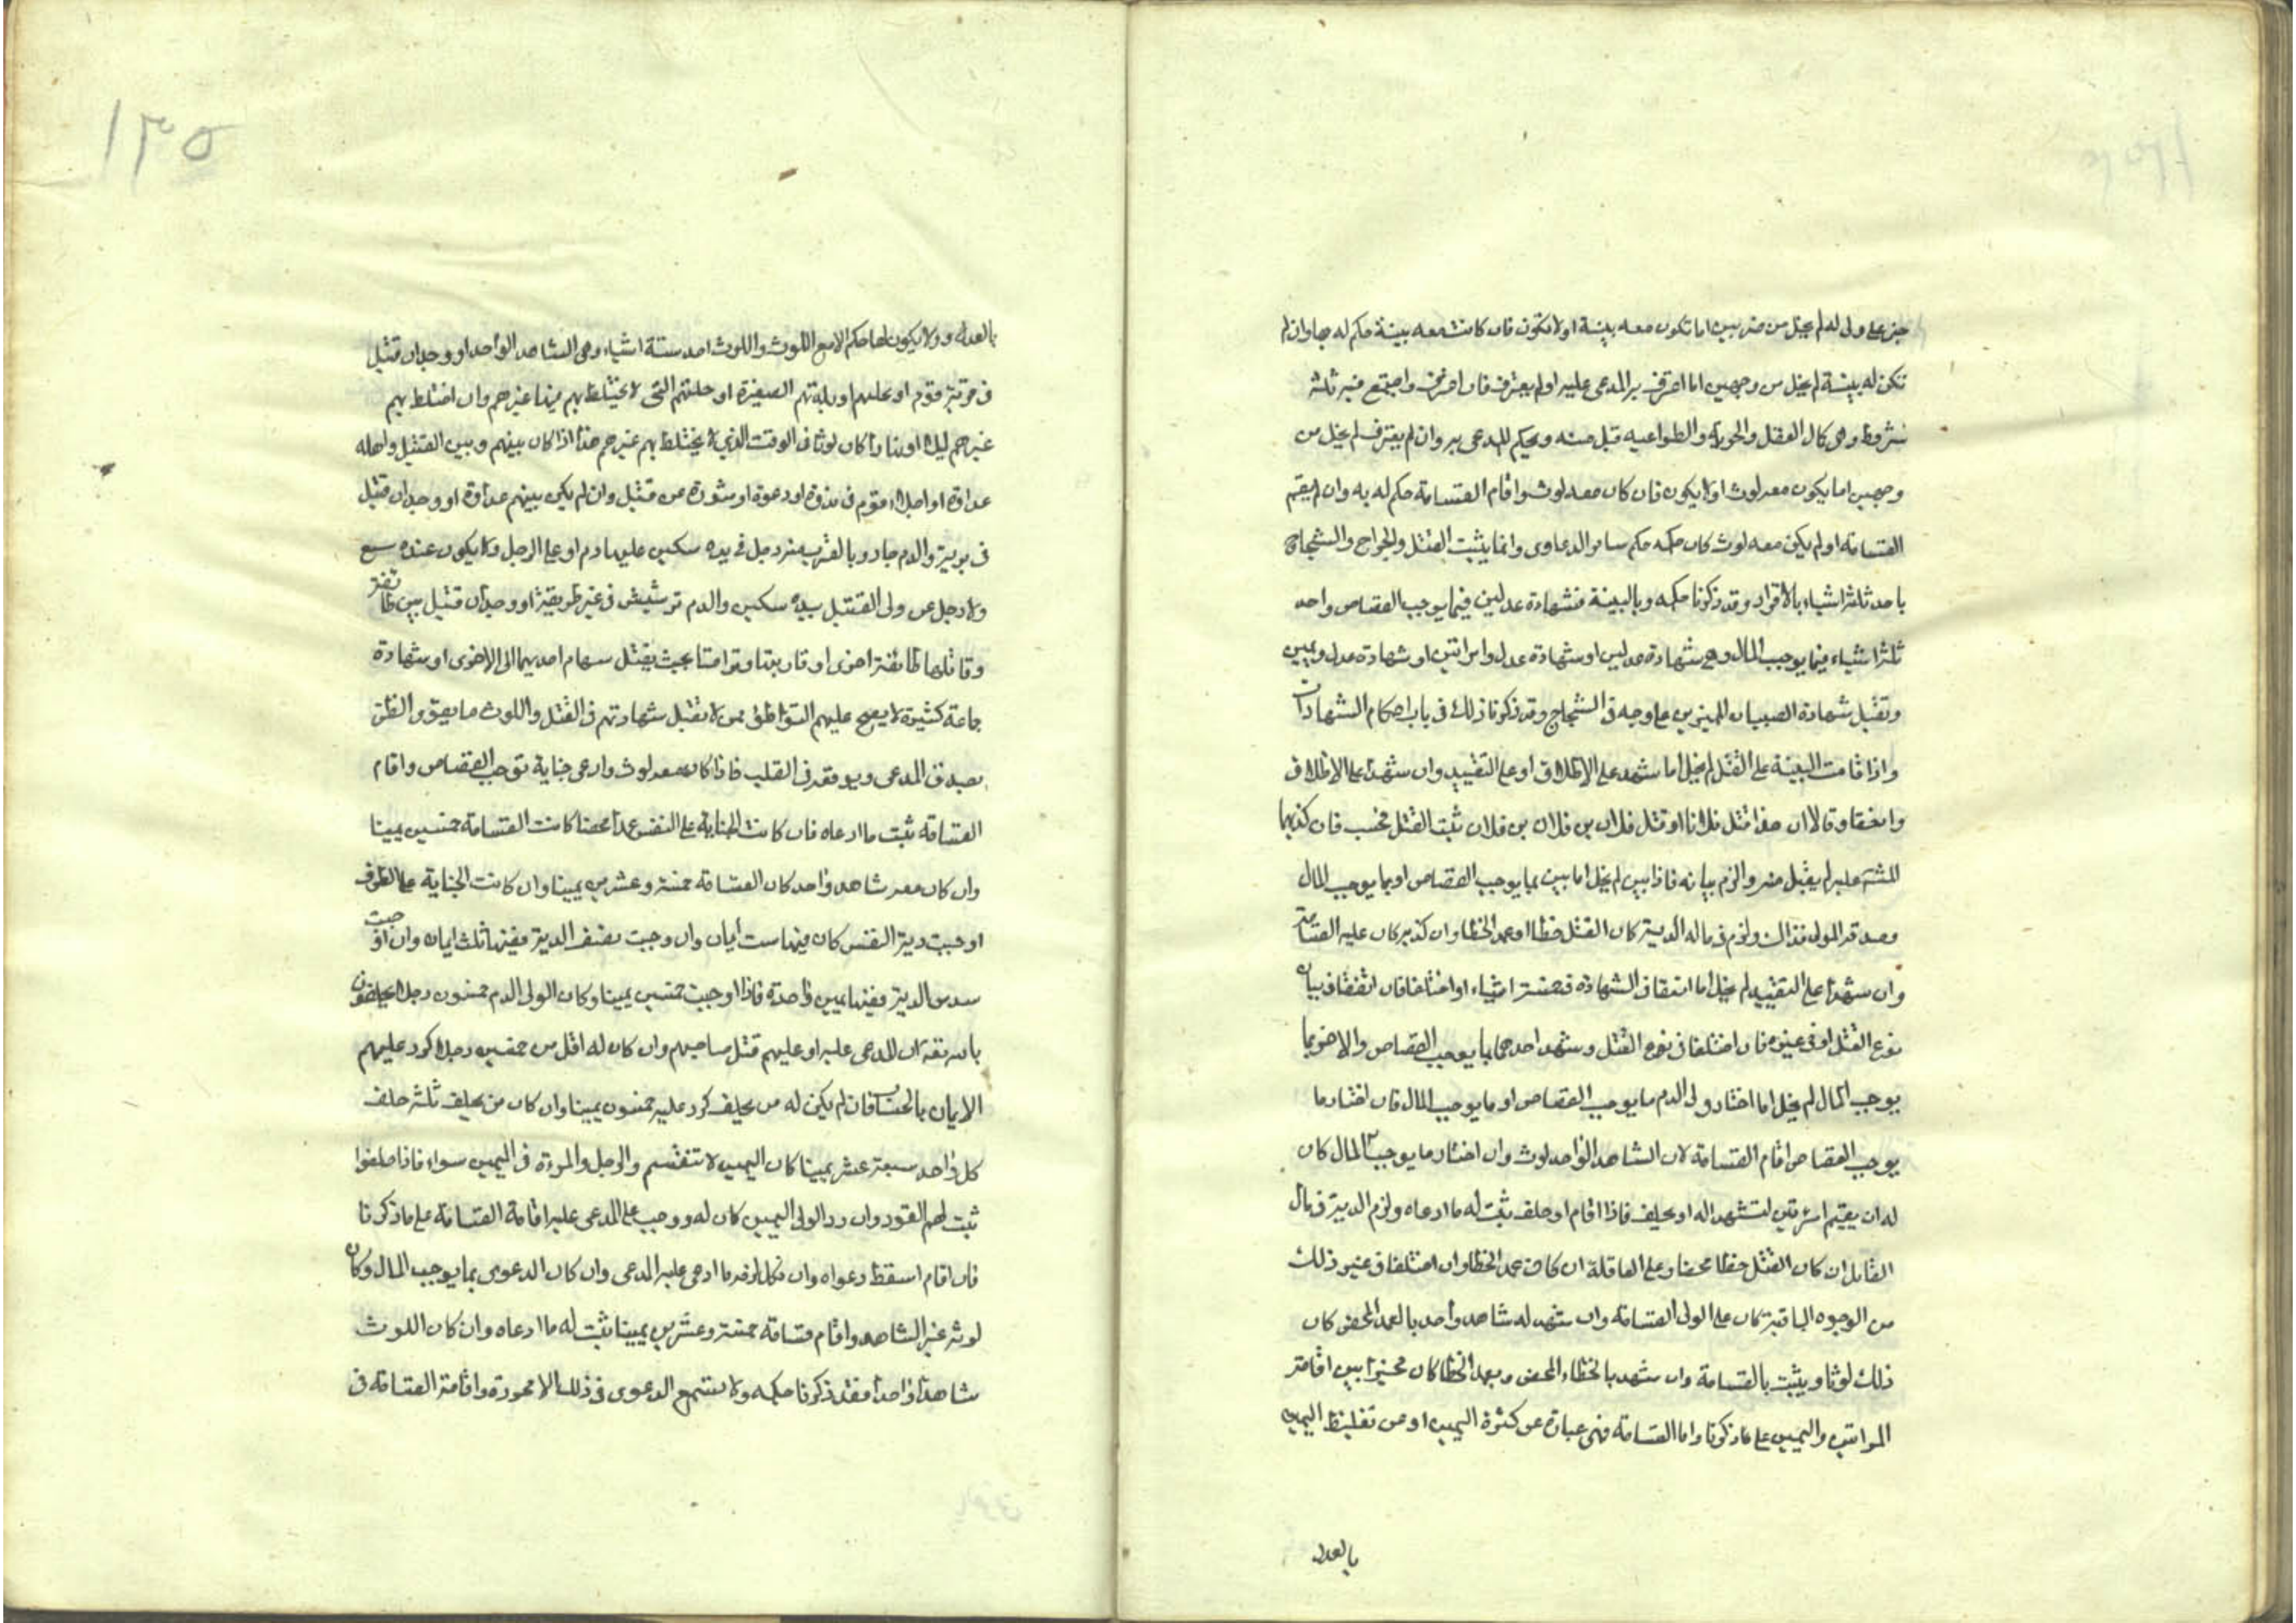 جنى على ولى له لم يخل من ضربين اما تكون معه بينة او لا تكون فان كانت معه بينة حكم له بها وان لم
تكن له بينة لم يخل من وجهين اما اعترف به المدعى عليه او لم يعترف فان اعترف واجتمع فيه ثلثة
شروط وهى كمال العقل والحرية والطواعيه قبل منه وحكم للمدعى به وان لم يعترف لم يخل من
وجهين اما يكون معه لوث او لا يكون فان كان معه لوث واقام القسامة حكم له به وان لم يقم
القسامة او لم يكن معه لوث كان حكمه حكم سائر الدعاوى وانما يثبت القتل والجراح والشجاج
باحد ثلثة اشياء بالاقرار وقد ذكرنا حكمه وبالبينة فشهادة عدلين فيما يوجب القصاص واحد
ثلثة اشياء فيما يوجب المال وهى شهادة عدلين او شهادة عدل وامراتين او شهادة عدل ويمين
وتقبل شهادة الصبيان المميزين على وجه فى الشجاج وقد ذكرنا ذلك فى باب احكام الشهادات
واذا قامت البينة على القتل لم يخل اما شهد على الاطلاق او على التقييد وان شهدا على الاطلاق
واتفقا وقالا ان هذا قتل فلانا او قتل فلان بن فلان بن فلان ثبت القتل فحسب فان كذبهما
المشهد عليه لم يقبل منه والزم بيانه فاذا بين لم يخل اما بين بما يوجب القصاص او بما يوجب المال
وصدقه المولى فذاك ولزم فى ماله الدية كان القتل خطا او عمد الخطا وان كذبه كان عليه القسامة
وان شهدا على التقييد لم يخل اما اتفقا فى الشهادة فى خمسة اشياء او اختلفا فان اتفقا فى بيان
نوع القتل او فى غيره فان اختلفا فى نوع القتل وشهد احدهما بما يوجب القصاص والاخر بما
يوجب المال لم يخل اما اختار ولى الدم ما يوجب القصاص او ما يوجب المال فان اختار ما
يوجب القصاص اقام القسامة لان الشاهد الواحد لوث وان اختار ما يوجب المال كان
له ان يقيم امرئتين لتشهدا له او يحلف فاذا اقام او حلف ثبت له ما ادعاه ولزم الدية فى مال
القاتل ان كان القتل خطا محضا وعلى العاقلة ان كان عمد الخطا وان اختلفا فى غير ذلك
من الوجوه الباقية كان على الولى القسامة وان شهد له شاهد واحد بالعمد المحض كان
ذلك لوثا ويثبت بالقسامة وان شهد بالخطاء المحض وبعمد الخطا كان مخيرا بين اقامة
المراتين واليمين على ما ذكرنا واما القسامة فهى عبارة عن كثرة اليمين او من تغليظ اليمين
بالعدد
١٣٥
بالعدد ولا يكون لها حكم الا مع اللوث واللوث احد ستة اشياء وهى الشاهد الواحد او وجدان قتيل
فى قرية قوم او محلتهم او بلدتهم الصغيرة او حلتهم التى لا يختلط بهم فيها غيرهم وان اختلط بهم
غيرهم ليلا او نهارا كان لوثا فى الوقت الذى لا يختلط بهم غيرهم هذا اذا كان بينهم وبين القتيل واهله
عداوة او اجلاء قوم فى او دعوة او مشورة عن قتيل وان لم يكن بينهم عداوة او وجدان قتيل
فى برية والدم جار وبالقرب منه رجل فى يده سكين عليها دم او على الرجل ولا يكون عنده سبع
ولا رجل عن ولى القتيل بيده سكين والدم ترشيش فى غير طريقه او وجدان قتيل بين طائفة
وقاتلها طائفة اخرى او قاربتا وترامتا بحيث يقتل سهام احديهما الى الاخرى او شهادة
جماعة كثيرة لا يصح عليهم التواطؤ ممن لا تقبل شهادتهم فى القتل واللوث ما يقوى الظن
بصدق المدعى ويوقعه فى القلب فاذا كان معه لوث وادعى جناية توجب القصاص واقام
القسامة ثبت ما ادعاه فان كانت الجناية على النفس عمدا محضا كانت القسامة خمسين يمينا
وان كان معه شاهد واحد كان القسامة خمسة وعشرين يمينا وان كانت الجناية على الطرف
اوجبت دية النفس كان فيها ست ايمان وان وجبت نصف الدية ففيها ثلث ايمان وان اوجبت
سدس الدية ففيها يمين واحدة فاذا اوجبت خمسين يمينا وكان لولى الدم خمسون رجلا يحلفون
بالله تعه ان المدعى عليه او عليهم قتل صاحبهم وان كان له اقل من خمسين رجلا كرر عليهم
الايمان بالحساب فان لم يكن له من يحلف كرر عليه خمسون يمينا وان كان من يحلف ثلثة حلف
كل واحد سبعة عشر يمينا كان اليمين لا تنقسم والرجل والمرءة فى اليمين سواء فاذا حلفوا
ثبت لهم القود وان رد الولى اليمين كان له ووجب على المدعى عليه اقامة القسامة على ما ذكرنا
فان اقام اسقط دعواه وان نكل لزمه ما ادعى عليه المدعى وان كان الدعوى بما يوجب المال وكان
لوثه غير الشاهد واقام قسامة خمسة وعشرين يمينا ثبت له ما ادعاه وان كان اللوث
شاهدا واحدا فقد ذكرنا حكمه ولا يستمع الدعوى فى ذلك الا محررة واقامة القسامة فى